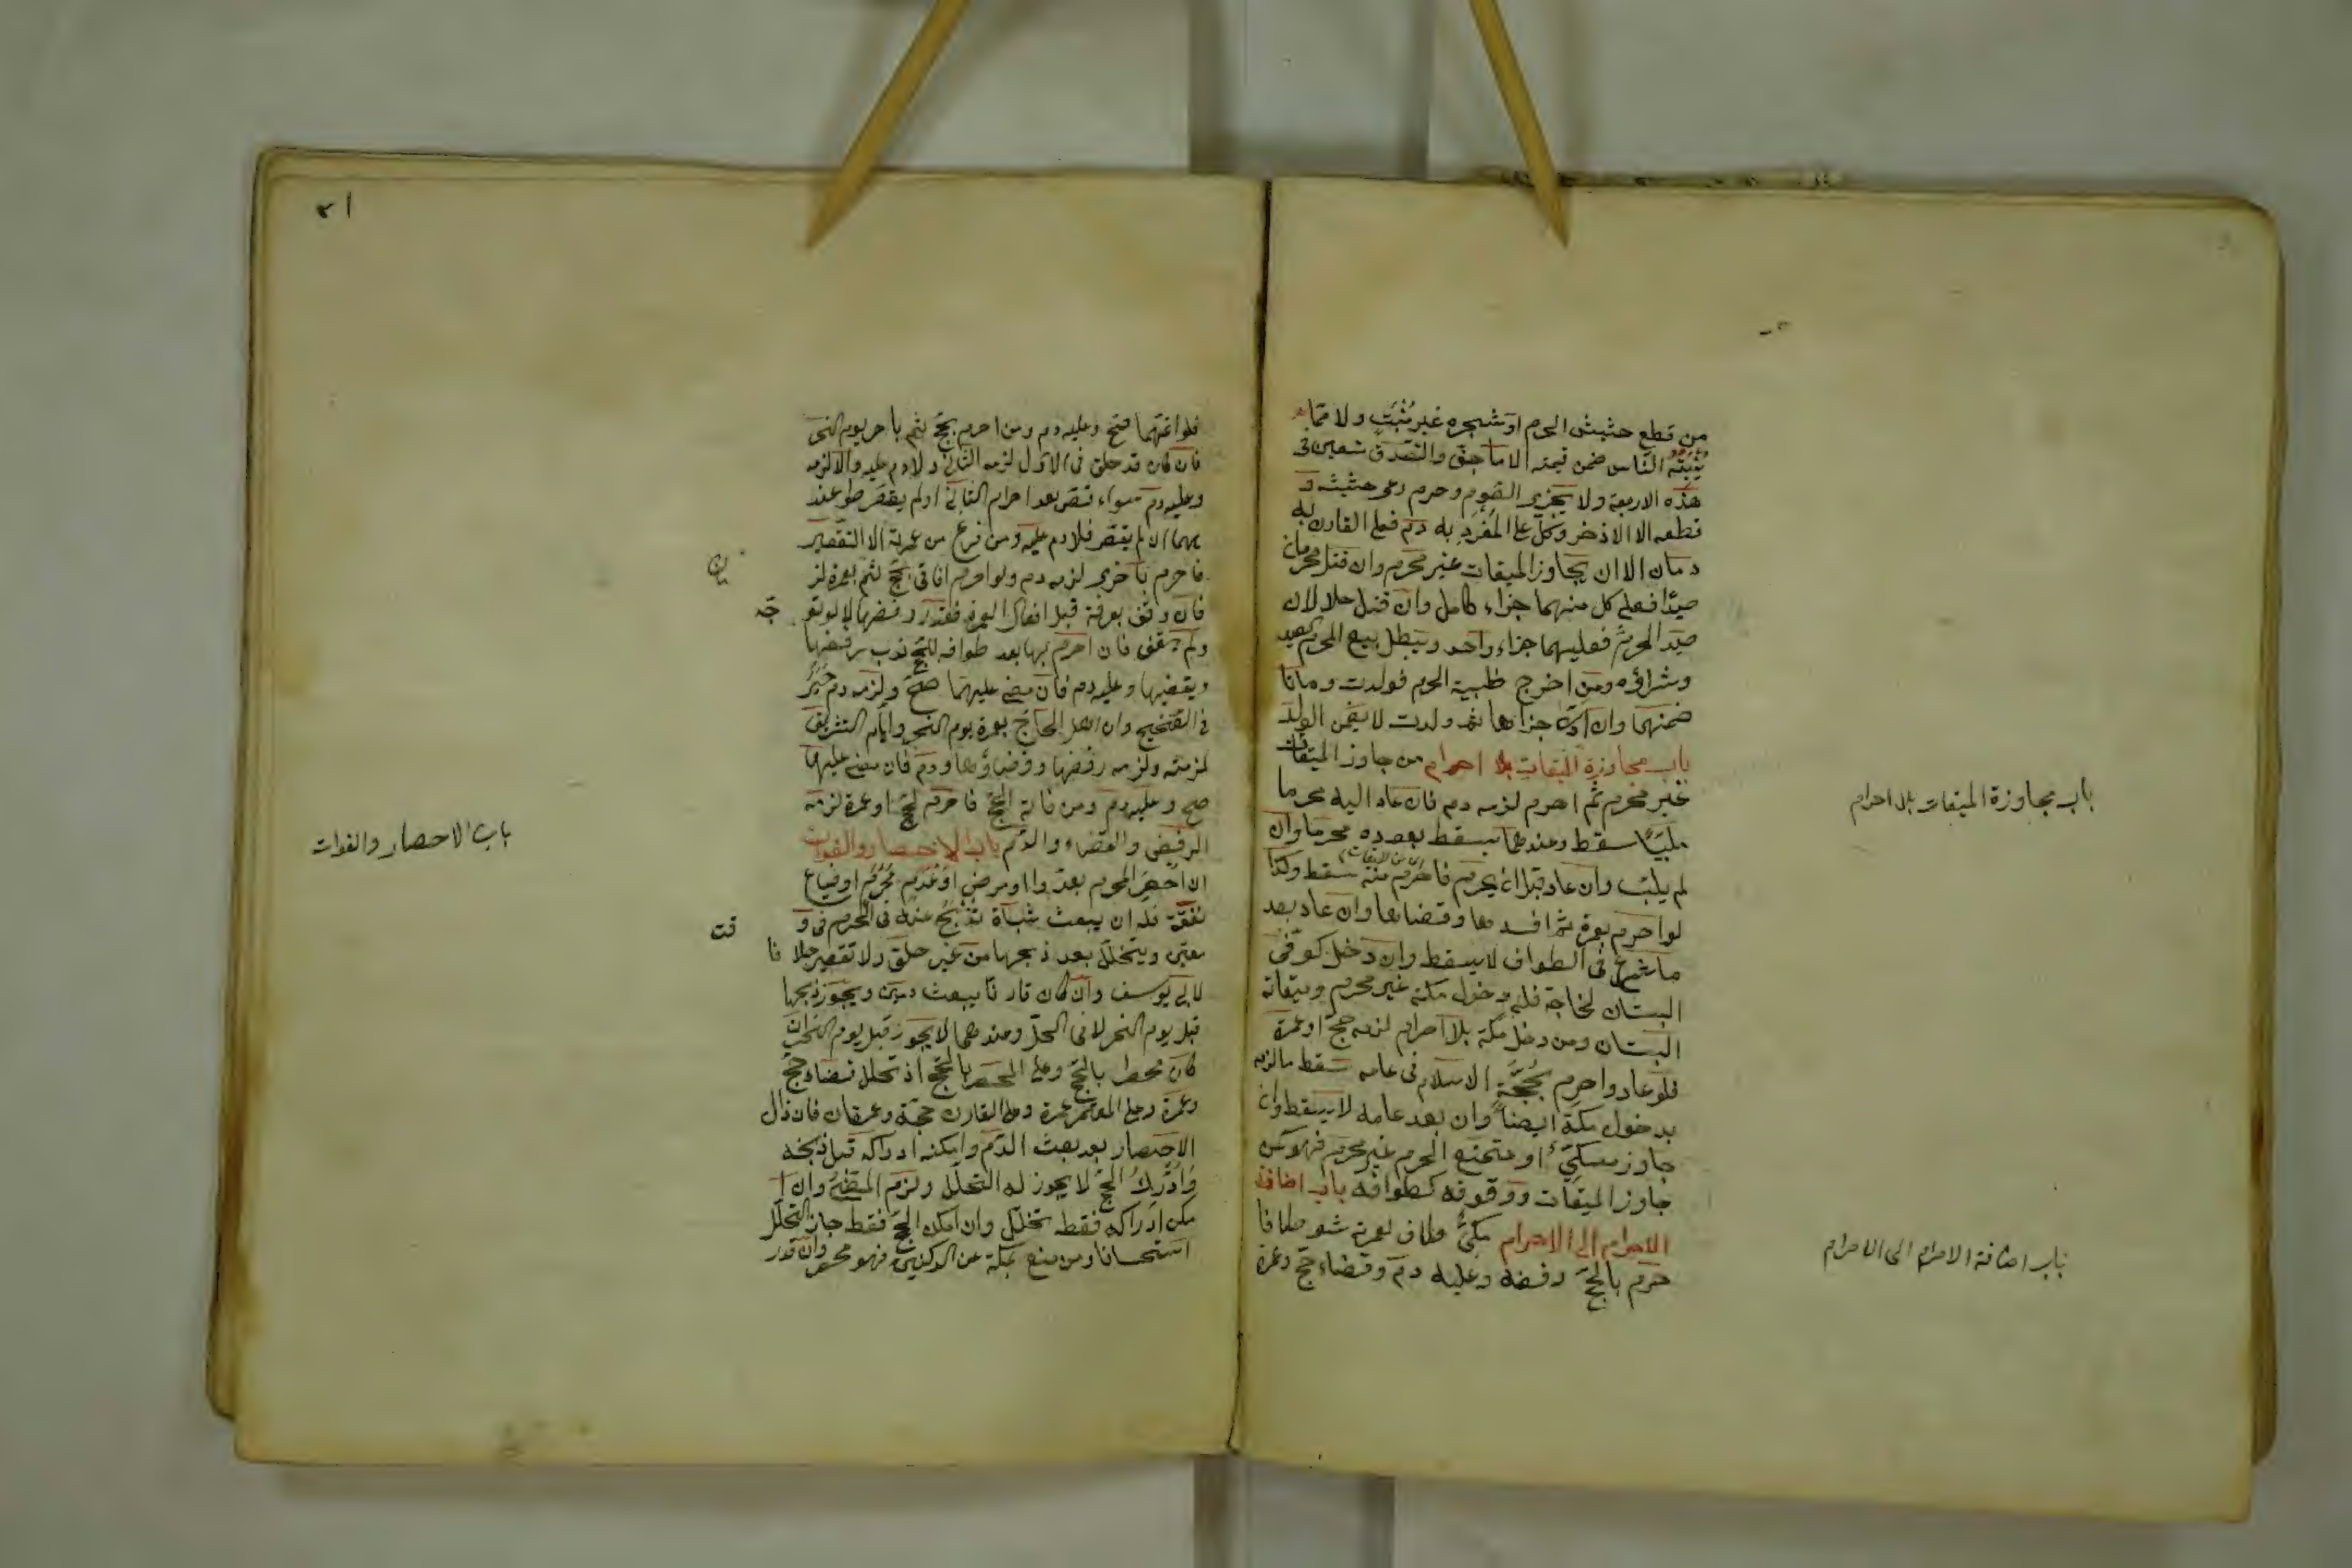 من قطع حشيش الحرم او شجره غير منبت ولا مما
ينبته الناس ضمن قيمته الا ما جف والتصدق متعين فى
هذه الاربعة ولا يجزى الصوم وحرم رعى حشيشه و
قطعه الا الاذخر وكل ما على المفرد به دم فعلى القارن به
دمان الا ان يجاوز الميقات غير محرم وان قتل محرمان
صيدا فعلى كل منهما جزاء كامل وان قتل حلالان
صيد الحرم فعليهما جزاء واحد ويبطل بيع المحرم الصيد
وشراؤه ومن اخرج ظبية الحرم فولدت وماتا
ضمنهما وان ادى جزاءها ثم ولدت لا يضمن الولد
باب مجاوزة الميقات بلا احرام من جاوز الميقات
غير محرم ثم احرم لزمه دم فان عاد اليه محرما
ملبيا سقط وعندهما يسقط بعوده محرما وان
لم يلب وان عاد قبل ان يحرم فاحرم منه سقط وكذا
لو احرم بعمرة ثم افسدها وقضاها وان عاد بعد
ما شرع فى الطواف لا يسقط وان دخل كوفى
البستان لحاجة فله دخول مكة غير محرم وميقاته
البستان ومن دخل مكة بلا احرام لزمه حج او عمرة
فلو عاد واحرم بحجة الاسلام فى عامه سقط ما لزمه
بدخول مكة ايضا وان بعد عامه لا يسقط وان
جاوز مكى او متمتع الحرم غير محرم فهو كمن
جاوز الميقات ووقوفه كطوافه باب اضافة
الاحرام الى الاحرام مكى طاف لعمرته شوطا فا
حرم بالحج رفضه وعليه دم وقضاء حج وعمرة
باب مجاوزة الميقات بلا احرام
باب اضافة الاحرام الى الاحرام
٢١
فلو اتمهما صح وعليه دم ومن احرم بحج ثم باخر يوم النحر
فان كان قد حلق فى الاول لزمه الثانى ولا دم عليه والا لزمه
وعليه دم سواء قصر بعد احرام الثانى او لم يقصر وعند
هما ان لم يقصر فلا دم عليه ومن فرغ من عمرته الا التقصير
فاحرم باخرى لزمه دم ولو احرم افاقى بحج ثم بعمرة لز
فان وقف بعرفة قبل افعال العمرة فقد رفضها لا لو تو
ولم يقف فان احرم بها بعد طوافه للحج ندب رفضها
ويقضيها وعليه دم فان مضى عليهما صح ولزمه دم جبر
فى الصحيح وان اهل الحاج بعمرة يوم النحر وايام التشريق
لزمته ولزمه رفضها وقضاؤها ودم فان مضى عليهما
صح وعليه دم ومن فاته الحج فاحرم بحج او عمرة لزمه
الرفض والقضاء والدم باب الاحصار والفوات
ان احصر المحرم بعدو او مرض او عدم محرم او ضياع
نفقة فله ان يبعث شاة تذبح عنه فى الحرم فى و
معين ويتحلل بعد ذبحها من غير حلق ولا تقصير خلافا
لابى يوسف وان كان قارنا يبعث دمين ويجوز ذبحها
قبل يوم النحر لا فى الحل وعندهما لا يجوز قبل يوم النحر ان
كان محصرا بالحج وعلى المحصر بالحج اذ تحلل قضاء حج
وعمرة وعلى المعتمر عمرة وعلى القارن حجة وعمرتان فان زال
الاحصار بعد بعث الدم وامكنه ادراكه قبل ذبحه
وادراك الحج لا يجوز له التحلل ولزم المضى وان ا
مكن ادراكه فقط تحلل وان امكن الحج فقط جاز التحلل
استحسانا ومن منع بمكة عن الركنين فهو محصر وان قدر
قت
باب الاحصار والفوات